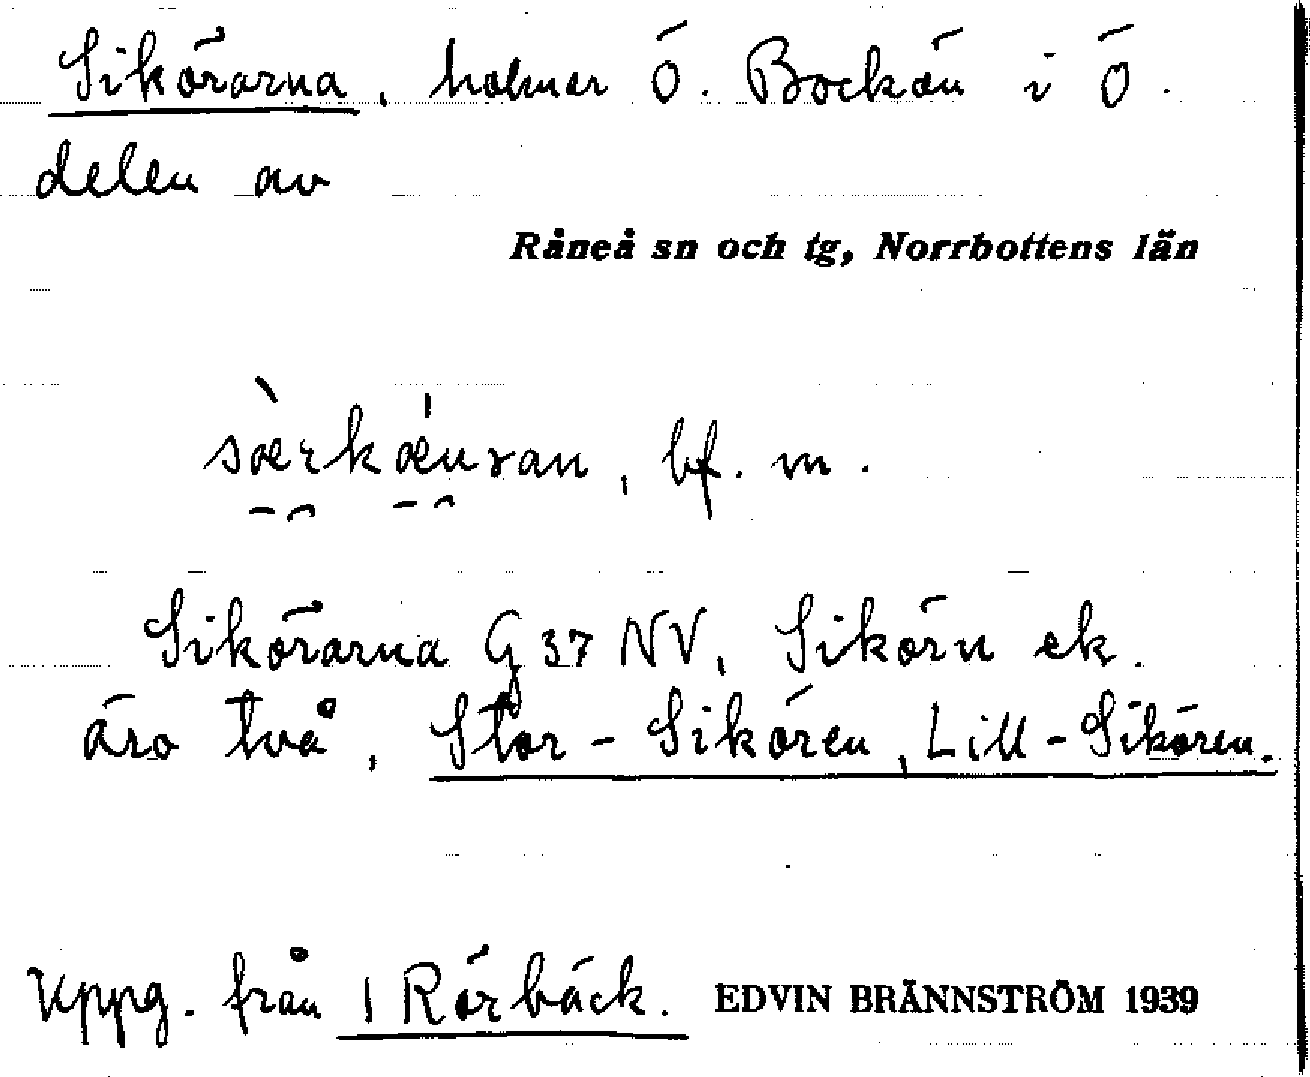 Sikörarna, holmar Ö. Bockön i Ö.
delen av
Råneå sn och tg, Norrbottens län
sæ̀rkǽnran, bf. m.
Sikörarna G 37 NV, Sikörn ek.
äro två, Stor-Sikören, Lill-Sikören.
Uppg. från 1 Rörbäck. EDVIN BRÄNNSTRÖM 1939